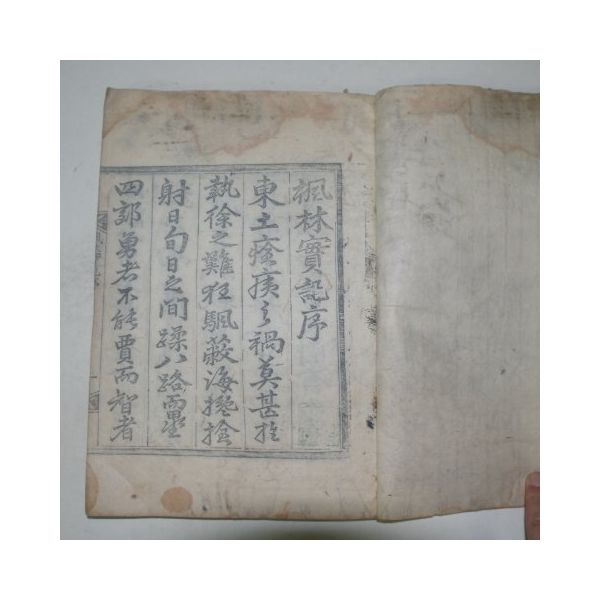 楓林實記序
東土瘡痍之禍莫甚於
執徐之難狂颿蔽海攙搶
射日旬日之間蹂八路而墨
四郡勇者不能賈而智者